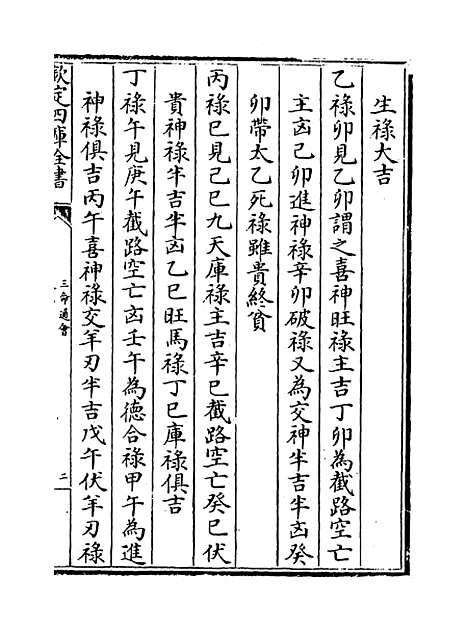 生祿大吉
乙祿卯見乙卯謂之喜神旺祿主吉丁卯為截路空亡
主凶己卯進神祿辛卯破祿又為交神半吉半凶癸
卯帶太乙死祿雖貴終貧
丙祿巳見己巳九天庫祿主吉辛巳截路空亡癸巳伏
貴神祿半吉半凶乙巳旺馬祿丁巳庫祿俱吉
丁祿午見庚午截路空亡凶壬午為德合祿甲午為進
神祿俱吉丙午喜神祿交羊刃半吉戊午伏羊刃祿
欽定四庫全書
三命通會
二